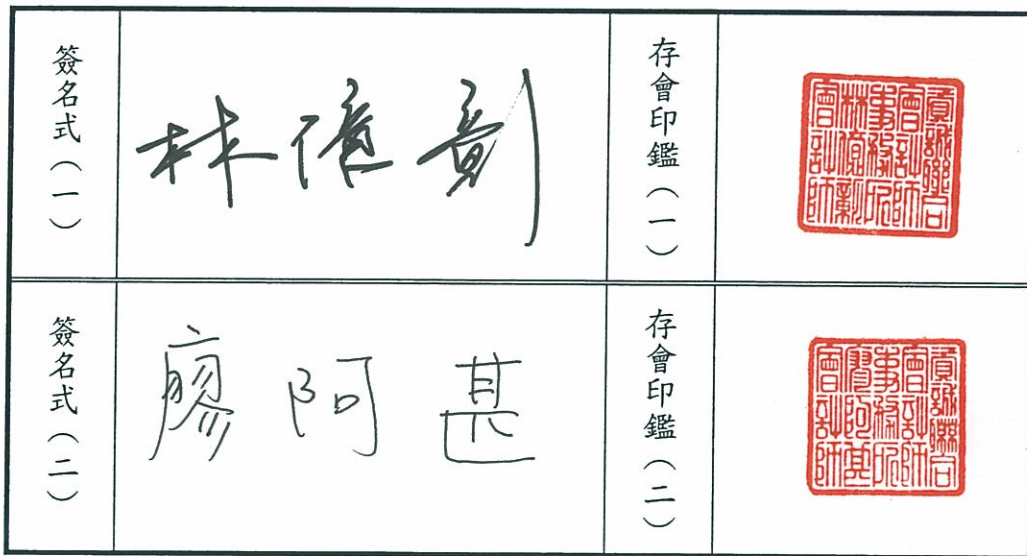 簽名式（一）
林億彰
存會印鑑（一）
貢誠聯合
會計師
事務所
林億彰
會計師
簽名式（二）
廖阿甚
存會印鑑（二）
貢誠聯合
會計師
事務所
廖阿甚
會計師